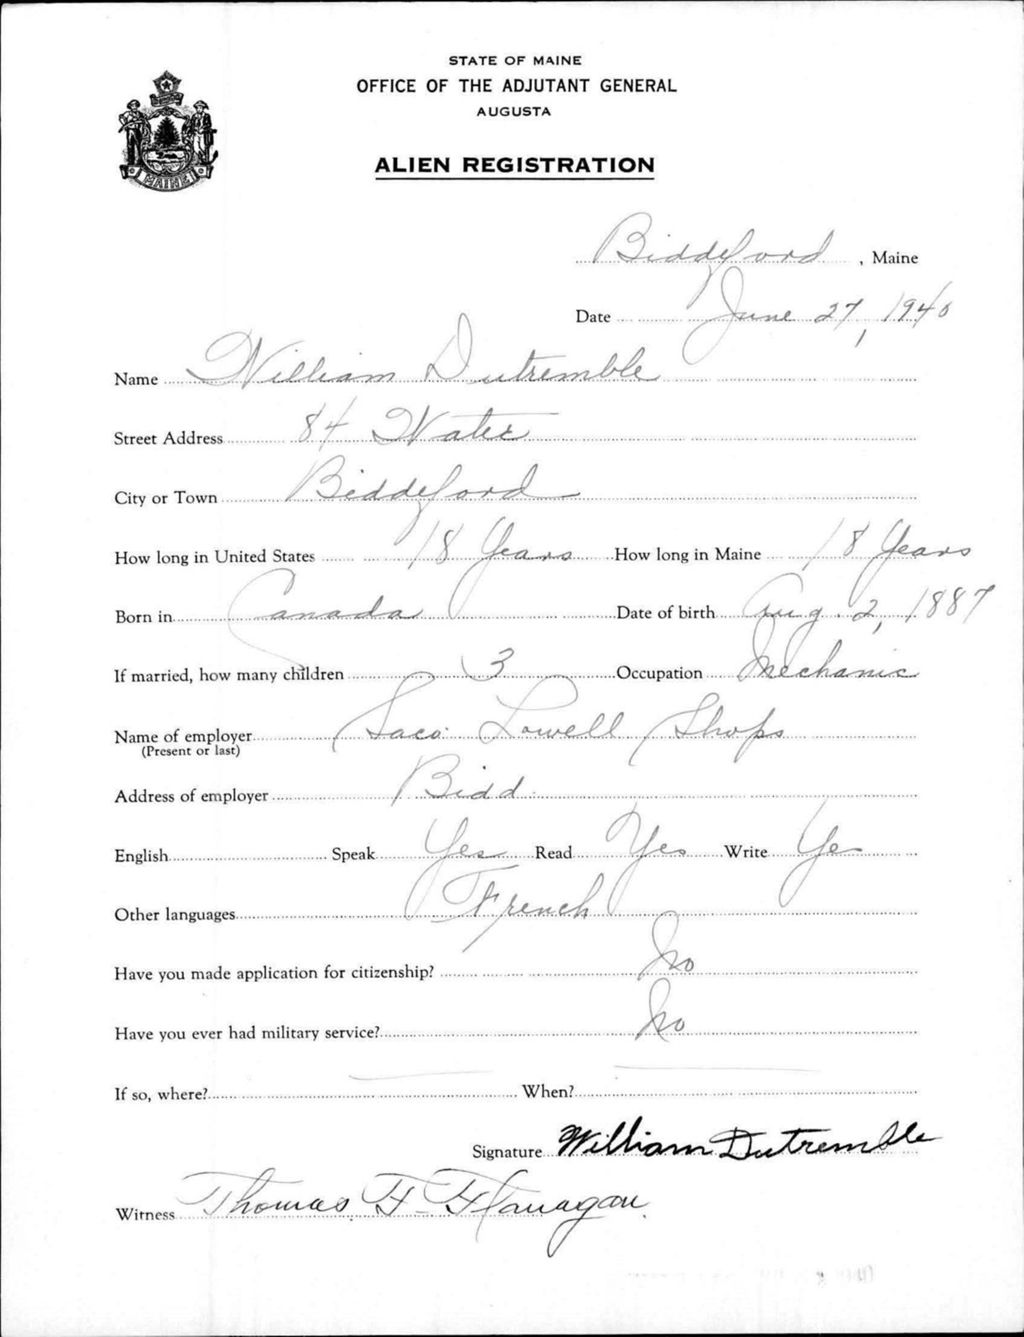 STATE OF MAINE
OFFICE OF THE ADJUTANT GENERAL
AUGUSTA
ALIEN REGISTRATION
MAINE
Biddeford, Maine
Date June 27, 1940
Name William Dutremble
Street Address 84 Water
City or Town Biddeford
How long in United States 18 Years How long in Maine 18 Years
Born in Canada Date of birth Aug. 2, 1887
If married, how many children 3 Occupation Mechanic
Name of employer Saco Lowell Shops
(Present or last)
Address of employer Bidd.
English Speak Yes Read Yes Write Yes
Other languages French
Have you made application for citizenship? No
Have you ever had military service? No
If so, where? When?
Signature William Dutremble
Witness Thomas F. Flanagan